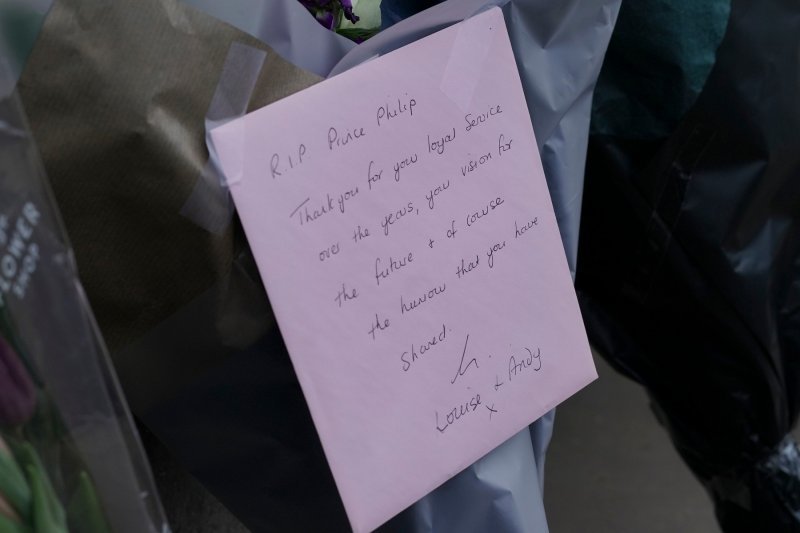 R.I.P Prince Philip
Thank you for your loyal Service
over the years, your vision for
the future + of course
the humour that you have
Shared.
Louise + Andy
x
LOWER
SHOP